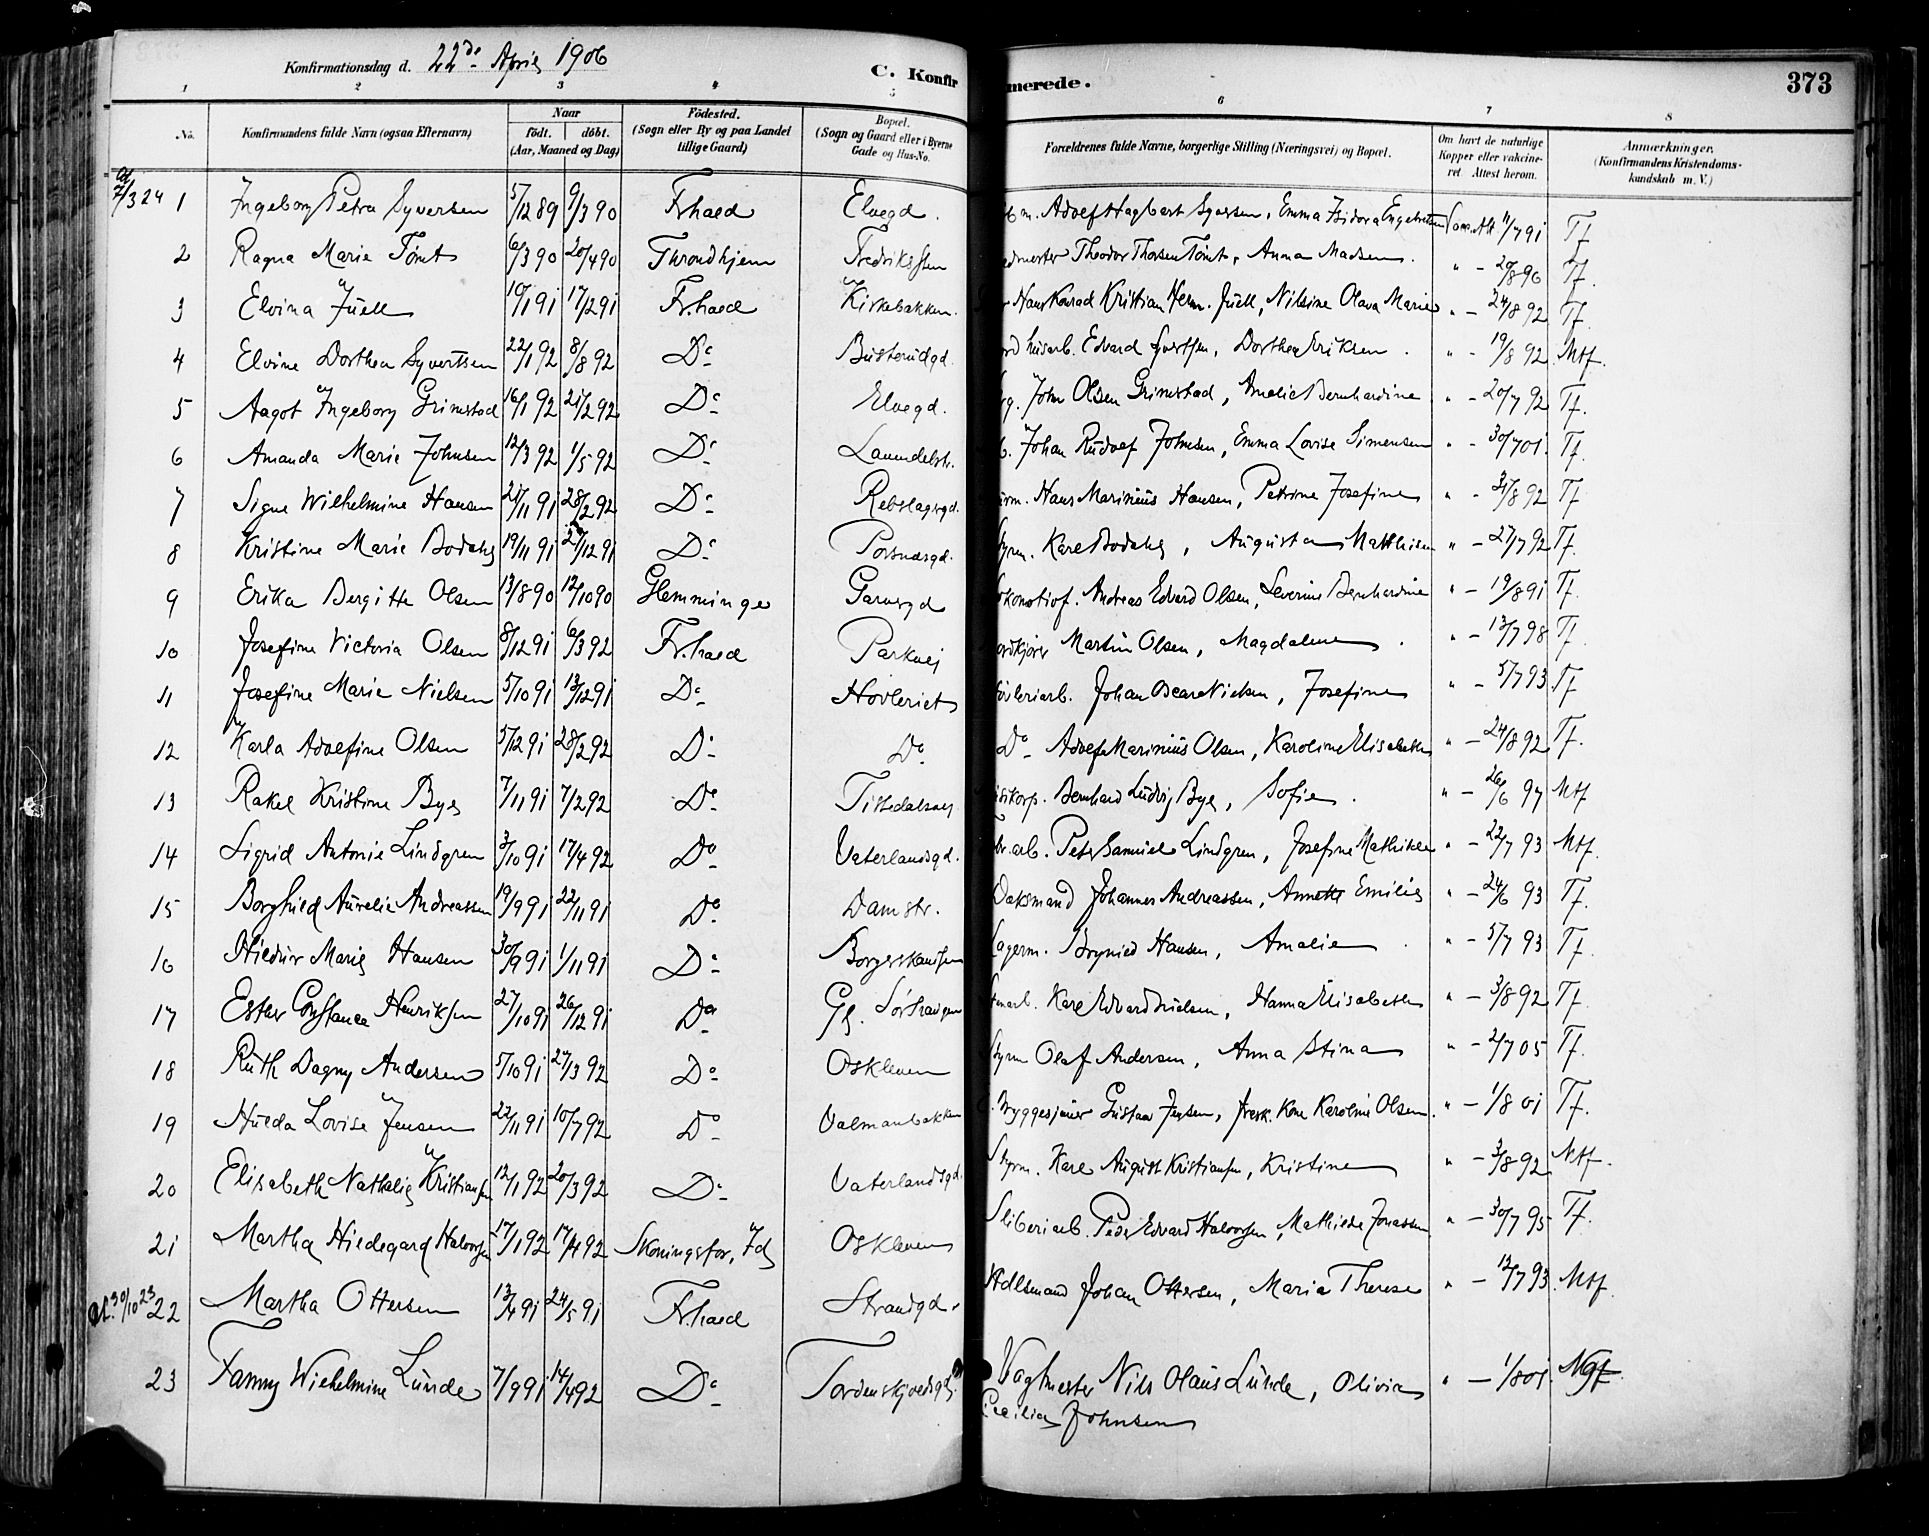 Konfirmationsdag d. 22de April 1906
C. Konfirmerede. 373
1 2 3 4 5 6 7 8
No. Konfirmandens fulde Navn (ogsaa Efternavn) Naar født. døbt. (Aar, Maaned og Dag) Födested. (Sogn eller By og paa Landet tillige Gaard) Bopæl. (Sogn og Gaard eller i Byerne Gade og Hus-No. Forældrenes fulde Navne, borgerlige Stilling (Næringsvei) og Bopæl. Om havt de naturlige Kopper eller vakcineret. Attest herom. Anmerkninger. (Konfirmandens Kristendomskundskab m. V.)
At. 7/3 24 1 Ingeborg Petra Syversen 5/12 89 9/3 90 Frhald Elvegd. Adolf Hagbart Syversen, Emma Isidora Engebretsen 11/7 91 Tf
2 Ragna Marie Tømt 6/3 90 20/4 90 Throndhjem Fredriksten Theodor Thorsen Tømt, Anna Madsen. " - 20/8 90 Tf.
3 Elvina Juell 10/1 91 17/2 91 Fr.hald Kirkebakken. Hans Konrad Kristian Herm. Juell, Nilsine Olava Marie " - 24/8 92 Tf.
4 Elvine Dorthea Syvertsen 22/1 92 8/8 92 Do Busterudgd. husarb. Edvard Syvertsen, Dorthea Eriksen. " - 19/8 92 Mtf.
5 Aagot Ingeborg Grimstad 16/1 92 21/2 92 Do Elvegd. John Olsen Grimstad, Amalie Bernhardine " - 20/7 92 Tf.
6 Amanda Marie Johnsen 12/3 92 1/5 92 Do Lavendelstr. Johan Rudolf Johnsen, Emma Lovise Simensen " - 30/7 01. Tf.
7 Signe Wilhelmine Hansen 21/11 91 28/2 92 Do Rebslagergd. Hans Marinius Hansen, Petrine Josefine " - 31/8 92 Tf
8 Kristine Marie Bodahl 19/11 91 27/12 91 Do Karl Bodahl, Augusta Matthisen " - 27/7 92 Tf.
9 Erika Bergitte Olsen 13/8 90 12/10 90 Glemminge Garvergd Lokomotivf. Andreas Edvard Olsen, Severine Bernhardine " - 19/8 91 Tf.
10 Josefine Victoria Olsen 8/12 91 6/3 92 Fr.hald Parkvej Martin Olsen, Magdalene. " - 13/7 98 Tf
11 Josefine Marie Nielsen 5/10 91 13/12 91 Do Hovleriet Høvleriarb. Johan Oscar Nielsen, Josefine " - 5/7 93 Tf
12 Karla Adolfine Olsen 5/12 91 28/2 92 Do Do Do Adolf Marinius Olsen, Karoline Elisabeth " - 24/8 92 Tf.
13 Rakel Kristine Bye 7/11 91 7/2 92 Do Tistedalsvej Bernhard Ludvig Bye, Sofie. " - 26/6 97 Mtf
14 Sigrid Antonie Lindgren 3/10 91 17/4 92 Do Vaterlandsgd. Peter Samuel Lindgren, Josefine Mathilde " - 22/7 93 Mtf.
15 Borghild Aurelie Andreassen 19/9 91 22/11 91 Do Damstr. Vaktmand Johannes Andreassen, Annette Emilie " - 24/6 93 Tf.
16 Hildur Marie Hansen 30/9 91 1/11 91 Do Borgerskansen Lagerm. Brynild Hansen, Amalie. " - 5/7 93 Tf.
17 Esther Constance Henriksen 27/10 91 26/12 91 Do Gl. Sørhavgen Karl Edvard, Hanna Elisabeth " - 3/8 92 Tf.
18 Ruth Dagny Andersen 5/10 91 27/3 92 Do Oskleven Styrm Olaf Andersen, Anna Stina " - 2/7 05 Tf.
19 Hulda Lovise Jensen 22/11 91 10/7 92 Do Valmanbakken Gustav Jensen, Kone Karoline Olsen. " - 1/8 01 Tf.
20 Elisabeth Nathalie Kristiansen 12/1 92 20/3 92 Do Vaterlandsgd. Styrm. Karl August Kristiansen, Kristine " - 3/8 92 Mtf.
21 Martha Hildegard Halvorsen 17/1 92 17/4 92 Skoningsfos, Id Oskleven Sliberiarb. Peder Edvard Halvorsen, Mathilde Jonassen " - 30/7 95 Tf.
At. 30/10 23 22 Martha Ottersen 13/4 91 24/5 91 Fr.hald Strandgd. Hdlsmand Johan Ottersen, Maria Therese " - 12/7 93. Mtf.
23 Fanny Wilhelmine Lunde 7/9 91 14/4 92 Do Tordenskjoldsgd. Vagtmester Nils Olaus Lunde, Olivia " - 1/8 01 Ngf.
Cecilia Johnsen